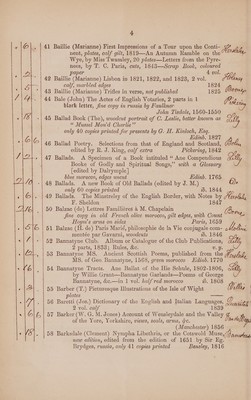 4
41 Baillie (Marianne) First Impressions of a Tour upon the Continent, plates, calf gilt, 1819—An Autumn Ramble on the
Wye, by Miss Twamley, 20 plates—Letters from the Pyrenees, by T. C. Paris, cuts, 1843—Scrap Book, coloured
paper 4 vol.
42 Baillie (Marianne) Lisbon in 1821, 1822, and 1823, 2 vol.
calf, marbled edges 1824
43 Baillie (Marianne) Trifles in verse, not published 1825
44 Bale (John) The Actes of English Votaries, 2 parts in 1
black letter, fine copy in russia by Faulkner
John Tisdale, 1560-1550
45 Ballad Book (The), woodcut portrait of C. Leslie, better known as
"Mussel Mou'd Charlie"
only 40 copies printed for presents by G. H. Kinloch, Esq.
Edinb. 1827
46 Ballad Poetry. Selections from that of England and Scotland,
edited by R. J. King, calf extra Pickering, 1842
47 Ballads. A Specimen of a Book intituled "Ane Compendious
Booke of Godly and Spiritual Songs," with a Glossary
[edited by Dalrymple]
blue morocco, edges uncut Edinb. 1765
48 Ballads. A new Book of Old Ballads (edited by J. M.)
only 60 copies printed ib. 1844
49 Ballads. The Minstrelsy of the English Border, with Notes by
F. Sheldon 1847
50 Balzac (de) Lettres Familières à M. Chapelain
fine copy in old French olive morocco, gilt edges, with Count
Hoym's arms on sides Paris, 1659
51 Balzac (H. de) Paris Marié, philosophie de la Vie conjugale commentée par Gavarni, woodcuts ib. 1846
52 Bannatyne Club. Album or Catalogue of the Club Publications,
2 parts, 1823; Rules, &c. v. y.
53 Bannatyne MS. Ancient Scottish Poems, published from the
MS. of Geo. Bannatyne, 1568, green morocco Edinb. 1770
54 Bannatyne Tracts. Ane Ballat of the Hie Schule, 1802-1806,
by Willie Grant—Bannatyne Garlands—Poems of George
Bannatyne, &c.—in 1 vol. half red morocco ib. 1808
55 Barber (T.) Picturesque Illustrations of the Isle of Wight
plates
56 Baretti (Jos.) Dictionary of the English and Italian Languages,
2 vol. calf 1839
57 Barker (W. G. M. Jones) Account of Wensleydale and the Valley
of the Yore, Yorkshire, views, seals, arms, &c.
(Manchester) 1856
58 Barksdale (Clement) Nympha Libethris, or the Cotswold Muse,
new edition, edited from the edition of 1651 by Sir Eg.
Brydges, russia, only 41 copies printed Bensley, 1816